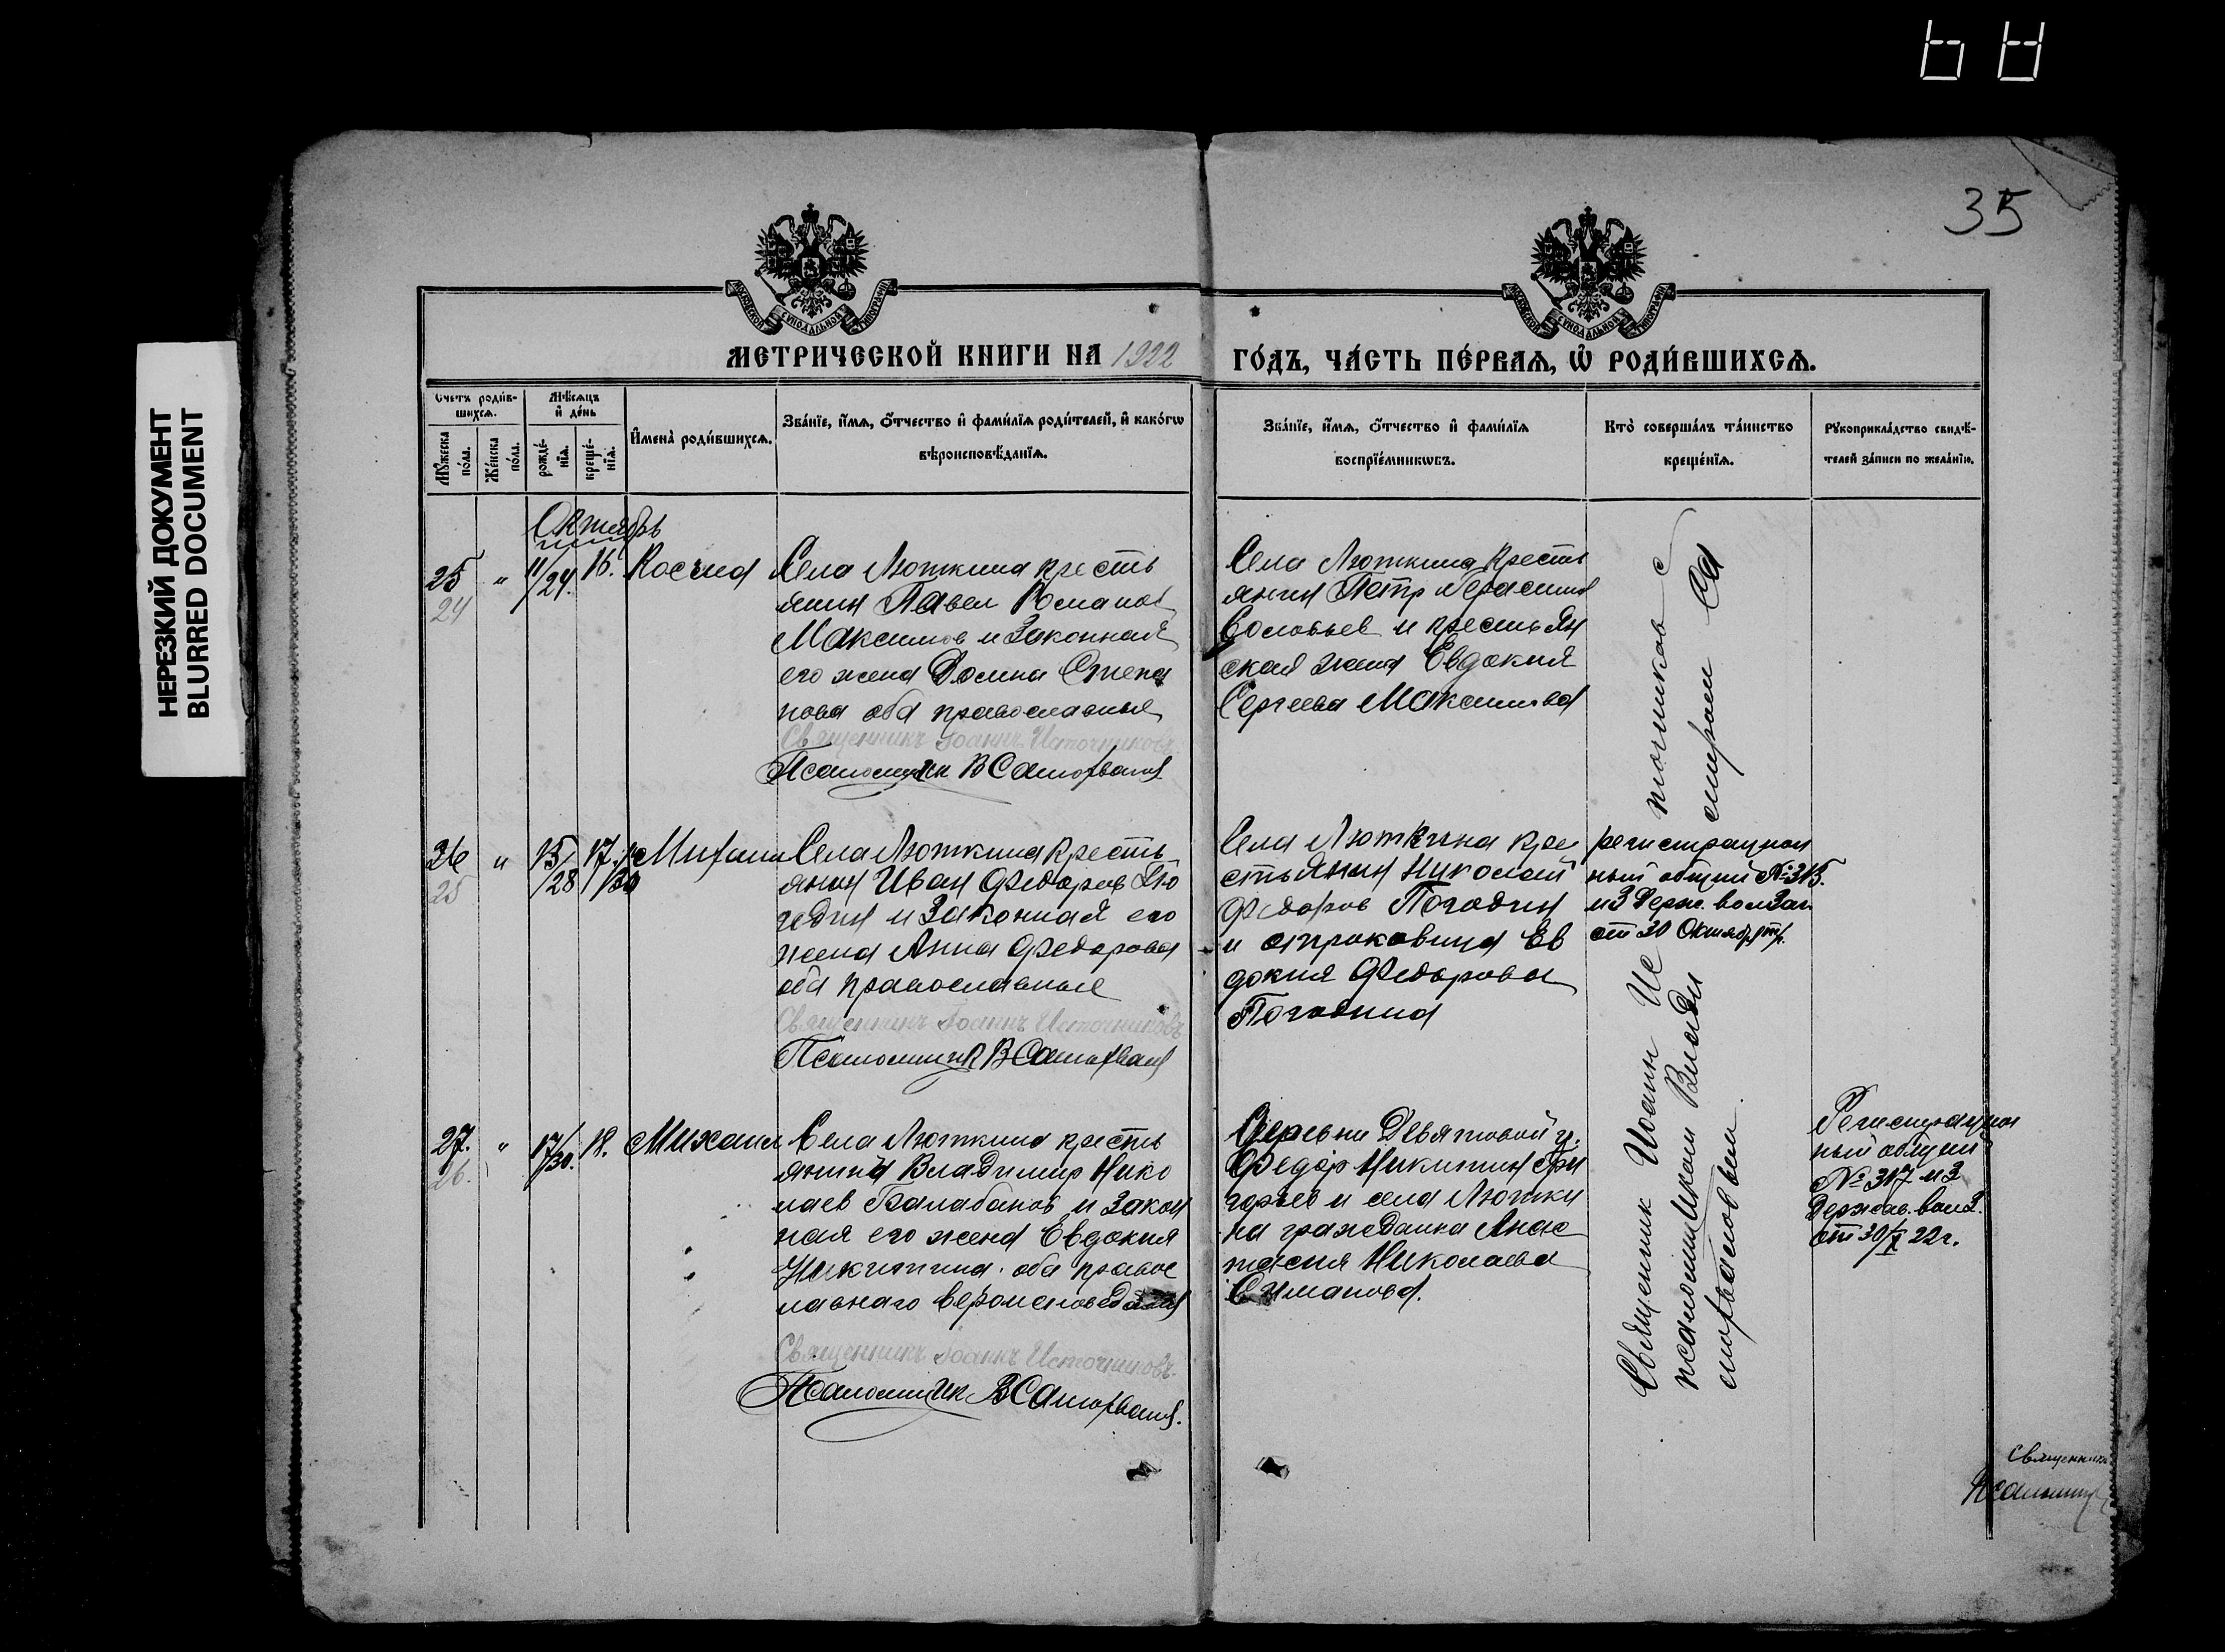 НЕРЕЗКИЙ ДОКУМЕНТ
BLURRED DOCUMENT
35
МОСКОВСКОЙ СѴНОДАЛЬНОЙ ТИПОГРАФІИ
МОСКОВСКОЙ СѴНОДАЛЬНОЙ ТИПОГРАФІИ
МЕТРИЧЕСКОЙ КНИГИ НА 1922
ГО́ДЪ, ЧА́СТЬ ПЕ́РВАѦ, Ѡ҆ РОДИ́ВШИХСѦ.
Счетъ роди́в-
шихсѧ.
Мꙋ́жеска
по́ла.
Же́нска
по́ла.
Мѣ́сѧцъ
и҆ де́нь
рожде́-
нїѧ.
креще́-
нїѧ.
И҆мена̀ роди́вшихсѧ.
Зва́нїе, и҆́мѧ, ѻ҆́тчество и҆ фами́лїѧ роди́телей, и҆ како́гѡ
вѣроисповѣ́данїѧ.
Зва́нїе, и҆́мѧ, ѻ҆́тчество и҆ фами́лїѧ
воспрїе́мникѡвъ.
Кто̀ соверша́лъ та́инство
креще́нїѧ.
Рꙋкоприкла́дство свидѣ́-
телей за́писи по жела́нїю.
Октябрь
25
24
"
11/24.
16.
Косьма
Села Люткина кресть
янин Павел
Максимов и законная
его жена Домна Степа
нова оба православные
Священникъ Іоаннъ Источниковъ
Псаломщик В
Села Люткина кресть
янин Петр Герасимов
Соловьев и крестьян
ская жена Евдокия
Сергеева Максимова
26
25
"
15/28
17/30
Михаил
Села Люткина кресть
янин Иван Федоров
и законная его
жена Анна Федорова
оба православные
Священникъ Іоаннъ Источниковъ
Псаломщик В
Села Люткина кре
стьянин Николай
Федоров Погодин
и отроковица Ев
докия Федорова
Погодина
регистрацион
ный общий № 315.
из Держ.
от 30 Октября
27.
26.
"
17/30.
18.
Михаил
Села Люткина кресть
янин Владимир Нико
лаев Балабанов и закон
ная его жена Евдокия
Никитина оба правос
лавнаго вероисповедания
Священникъ Іоаннъ Источниковъ
Псаломщик В
Деревни Девятовой г.
Федор Никитин Гри
горьев и села Лютки
на гражданка Анас
тасия Николаева
Симанова.
Регистрацион
ный общий
№ 317 из
Держав.
от 30/X 22 г.
Священник Иоанн Источников с
псаломщиком Владимиром
Священникъ
Псаломщик